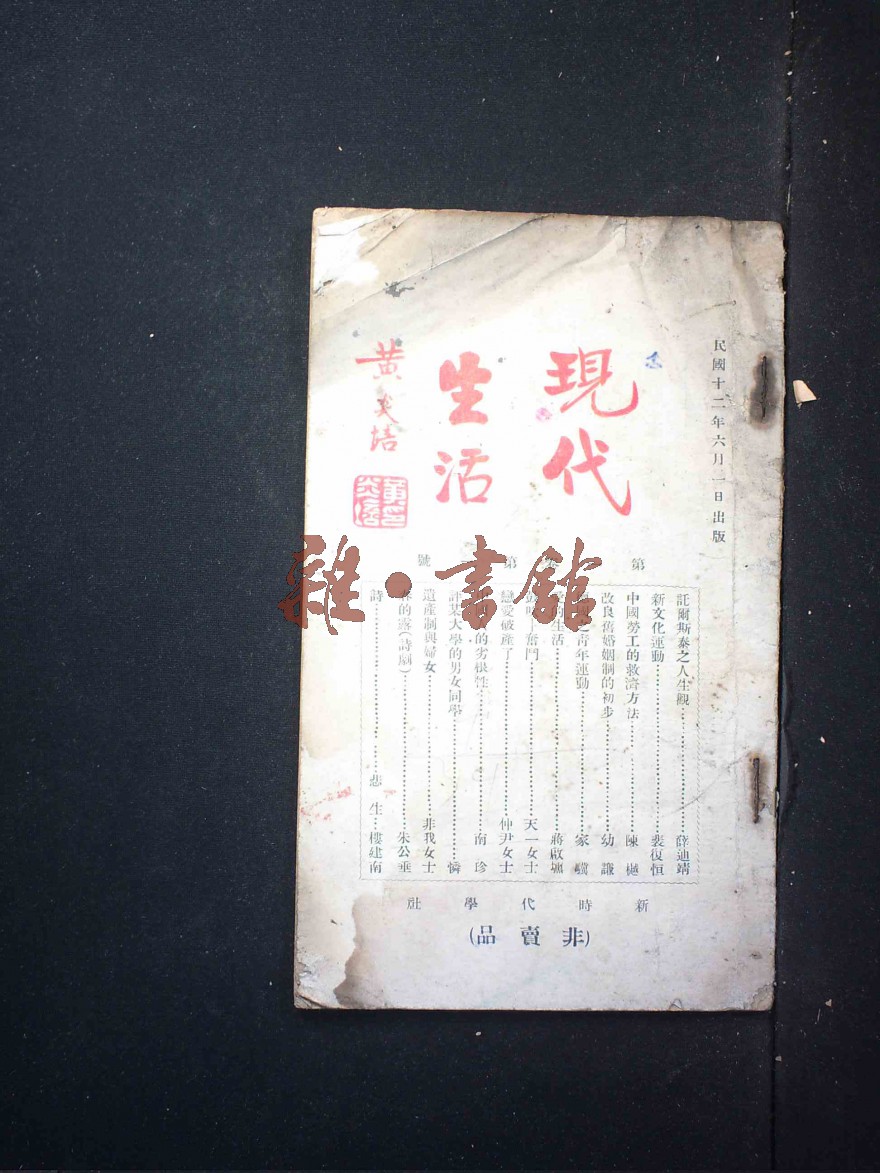 民國十二年六月一日出版
現代
生活
黃炎培
第 第 號
託爾斯泰之人生觀……薛迪靖
新文化運動……裴復恒
中國勞工的救濟方法……陳樾
改良舊婚姻制的初步……幼謙
之青年運動……家
的生活……蔣啟
奮鬥……天一女士
戀愛破產了……仲尹女士
的劣根性……南珍
評某大學的男女同學……憐
遺產制與婦女……非我女士
春的露(詩劇)……朱公垂
詩……悲生·樓建南
新時代學社
(非賣品)
雜·書館